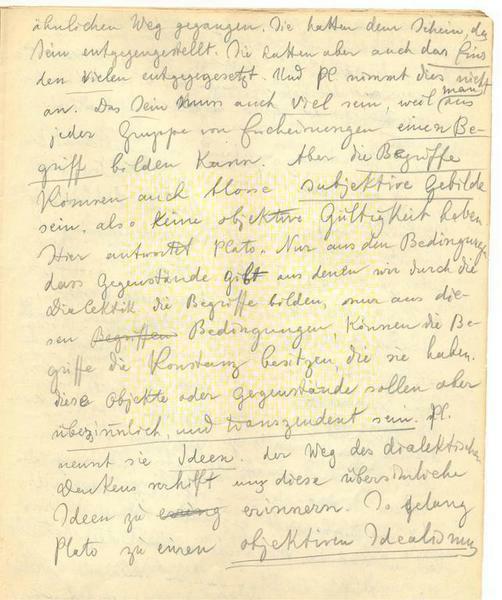 ähnlichen Weg gegangen. Sie hatten dem Schein das
Sein entgegengestellt. Sie hatten aber auch das Eins
den Vielen entgegegesetzt. Und Pl nimmt dies nicht
an. Das Sein muss auch viel sein, weil man aus
jeder Gruppe von Erscheinungen einen Be-
griff bilden kann. Aber die Begriffe
können auch blosse subjektive Gebilde
sein, also keine objektive Gültigkeit haben.
Hier antwortet Plato. Nur aus den Bedingungen
dass Gegenstände gibt aus denen wir durch die
Dialektik die Begriffe bilden, nur aus die-
sen Begriffen Bedingungen können die Be-
griffe die Konstanz besitzen, die sie haben.
diese Objekte oder Gegenstände sollen aber
übersinnlich, und transzendent sein. Pl.
nennt sie Ideen. der Weg des dialektischen
Denkens verhilft uns diese übersinnliche
Ideen zu erinnern. So gelang
Plato zu einen objektiven Idealismus